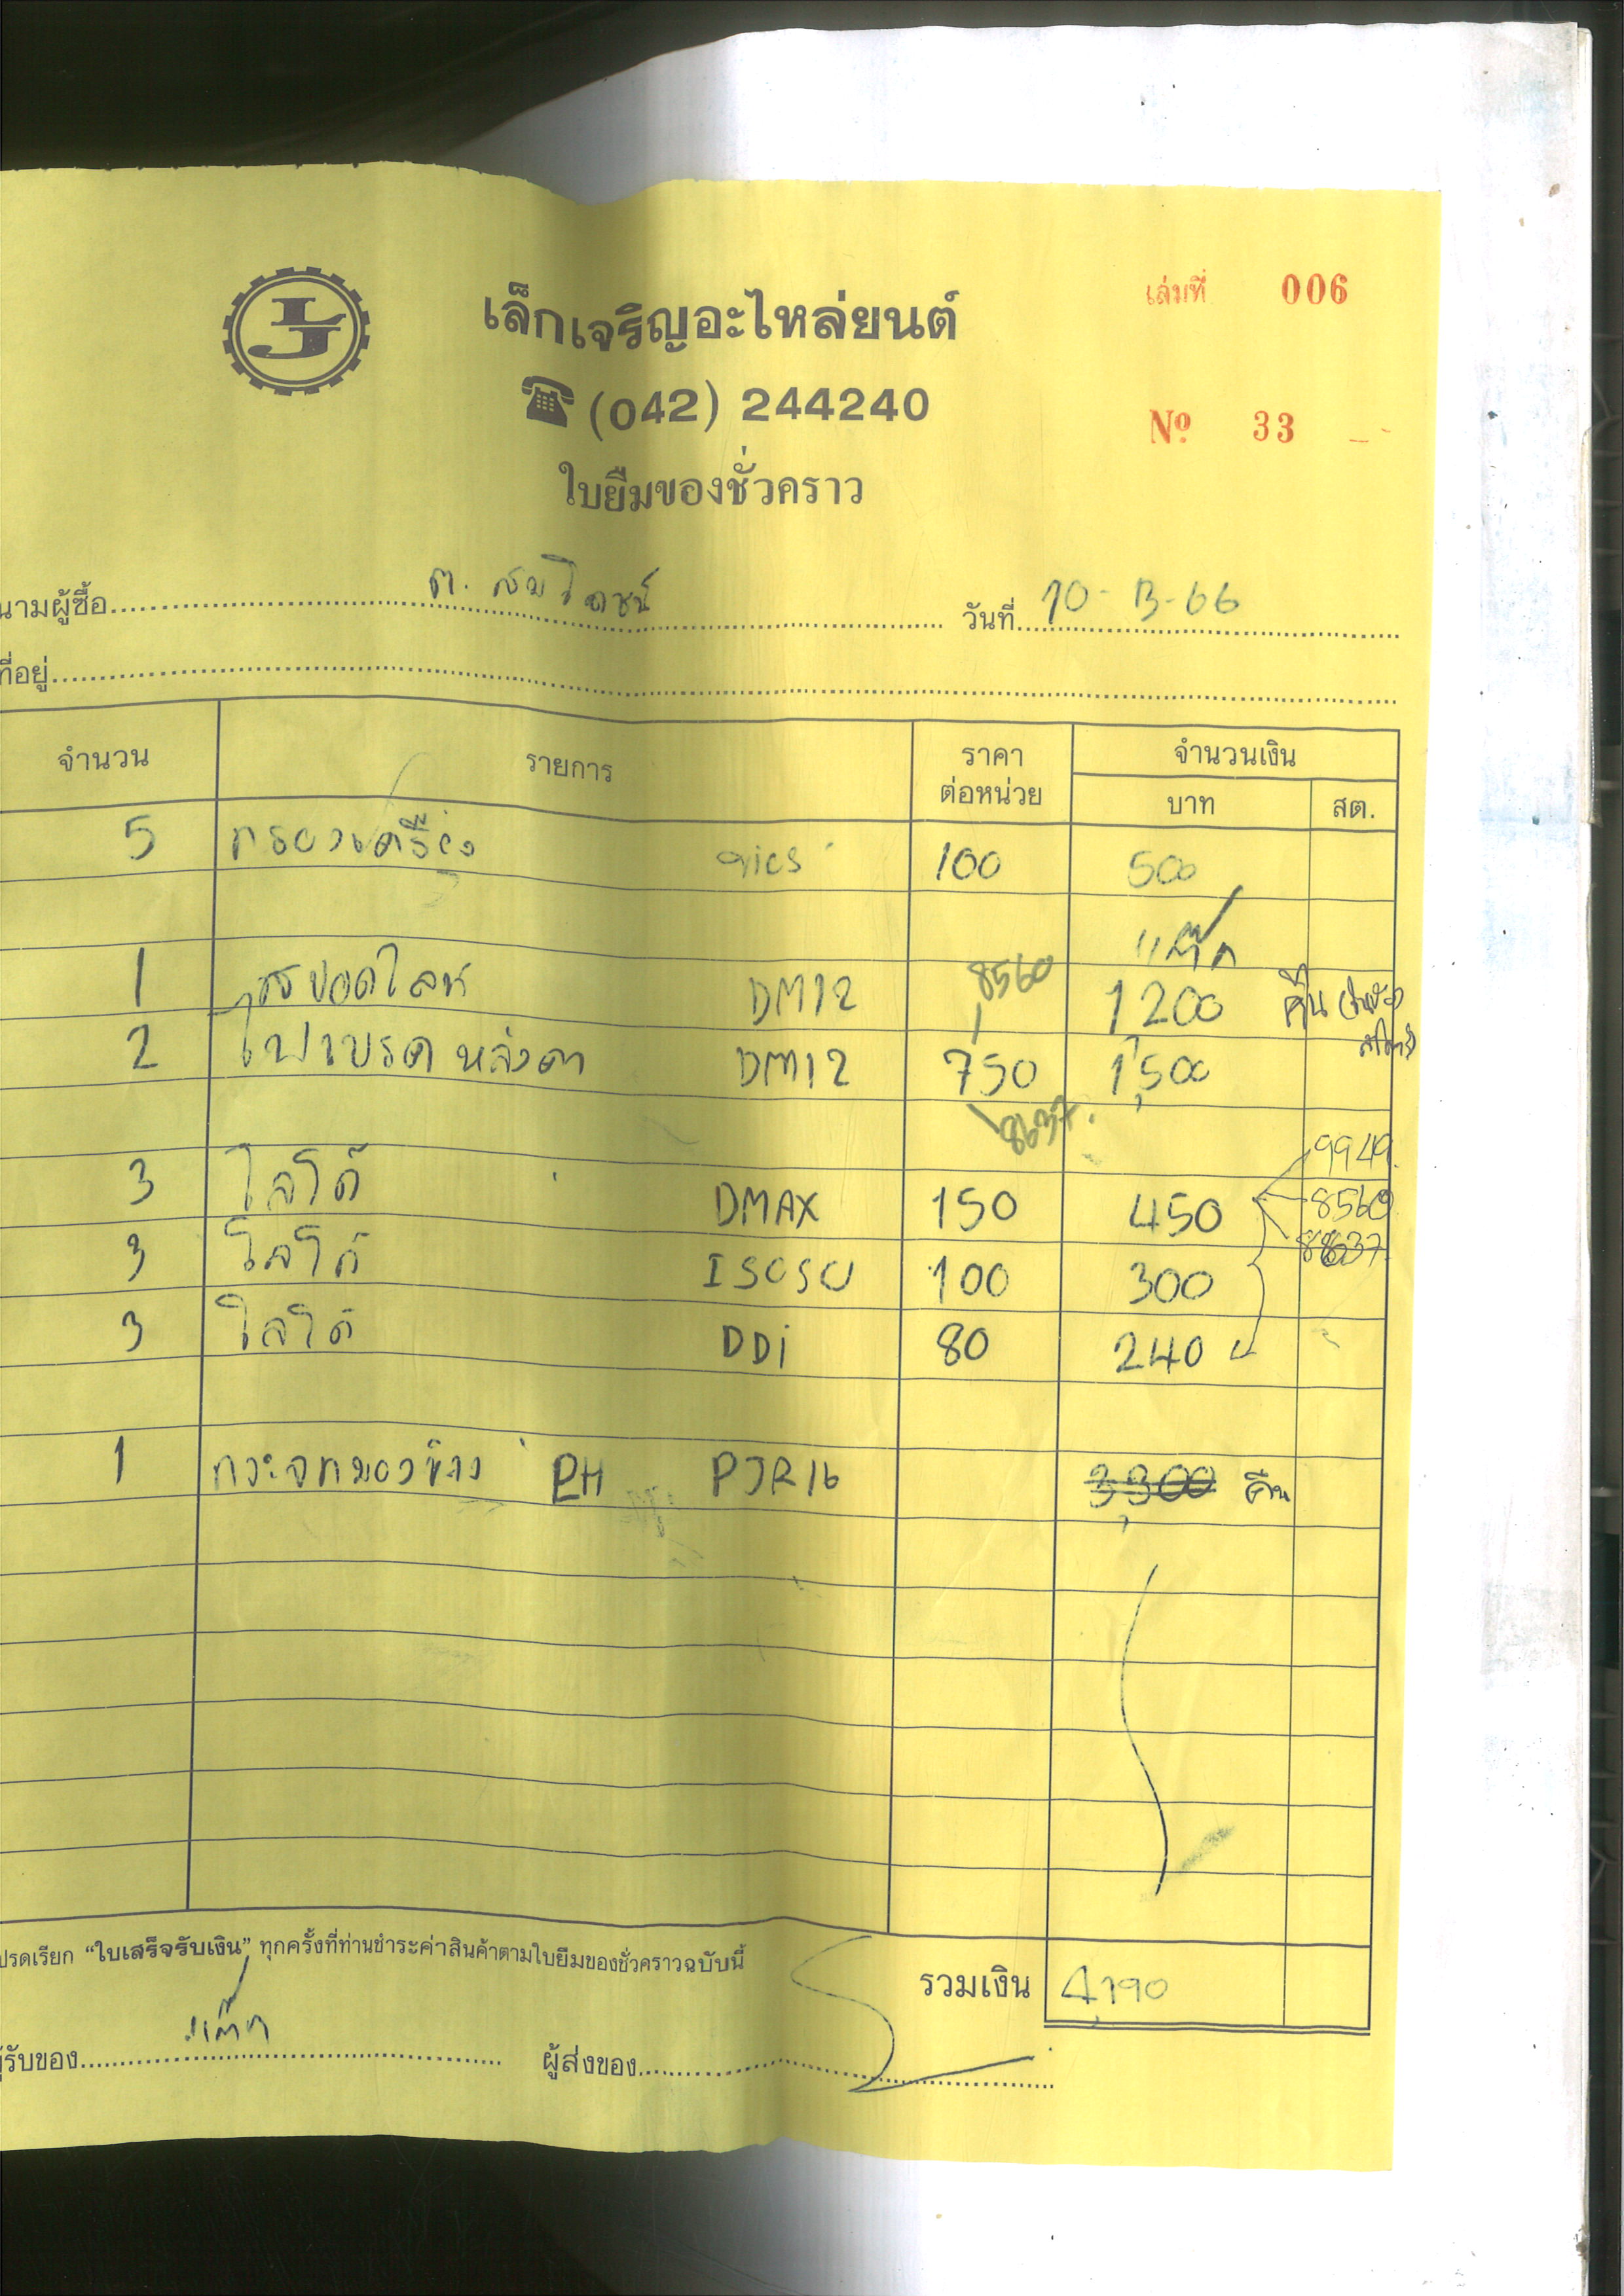 เล่มที่ 006
เล็กเจริญอะไหล่ยนต์
(042) 244240
Nº 33
ใบยืมของชั่วคราว
นามผู้ซื้อ
วันที่ 10-
ที่อยู่
จำนวน รายการ ราคาต่อหน่วย จำนวนเงิน
บาท สต.
5 กรองเครื่อง 100 500
แต๊ก
1 DM12 8560 1,200 คืน
2 ไฟเบรคหลังคา DM12 750 1,500
8637
9949
3 ไดโด้ DMAX 150 450 8560
8637
3 ไดโด้ ISUSU 100 300
3 ไดโด้ DDi 80 240
1 กระจกมองข้าง RH PJR16 3,300 คืน
โปรดเรียก "ใบเสร็จรับเงิน" ทุกครั้งที่ท่านชำระค่าสินค้าตามใบยืมของชั่วคราวฉบับนี้
รวมเงิน 4,190
ผู้รับของ แต๊ก ผู้ส่งของ